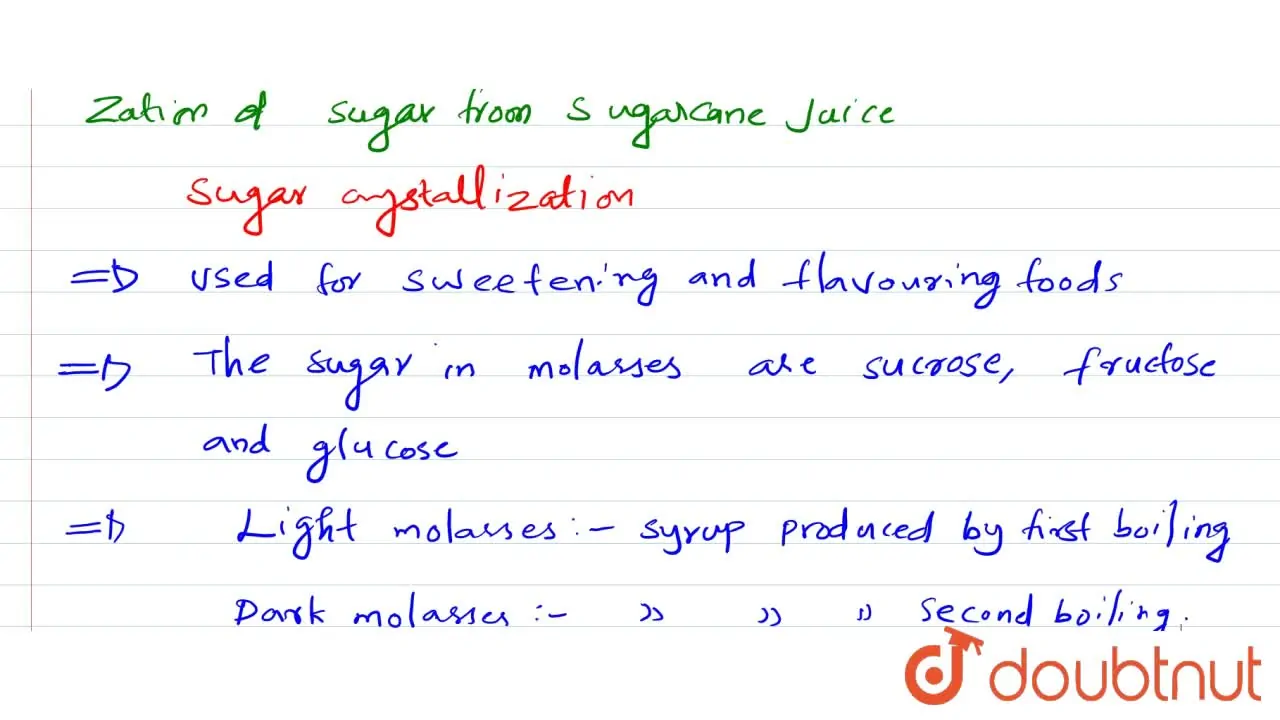 Zation of sugar from Sugarcane Juice
Sugar crystallization
⇒ used for sweetening and flavouring foods
⇒ The sugar in molasses are sucrose, fructose
and glucose
⇒ Light molasses :- syrup produced by first boiling
Dark molasses :- " " " second boiling.
doubtnut